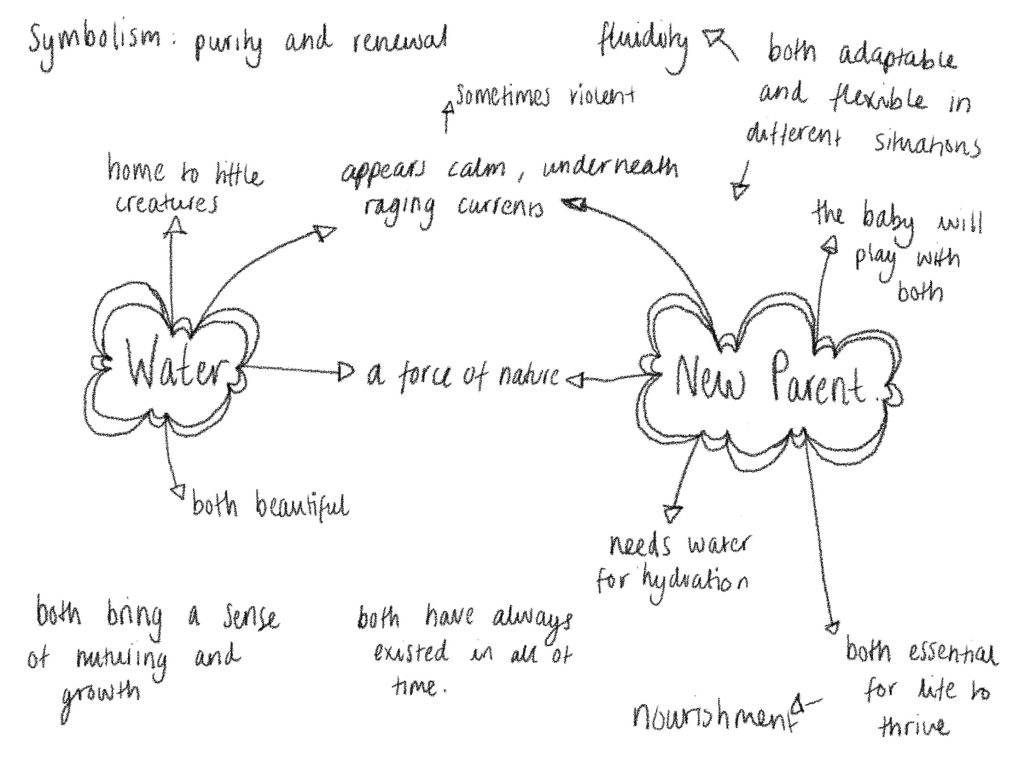 Symbolism: purity and renewal
fluidity
both adaptable
and flexible in
different situations
sometimes violent
home to little
creatures
appears calm, underneath
raging currents
the baby will
play with
both
Water
a force of nature
New Parent.
both beautiful
needs water
for hydration
both bring a sense
of nuturing and
growth
both have always
existed in all of
time.
both essential
for life to
thrive
nourishment